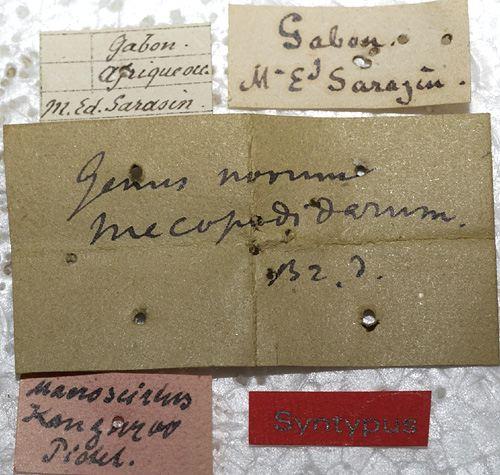 Gabon.
Afrique occ.
M. Ed. Sarasin.
Gabon.
Mr Ed Sarazin.
Genus novum
Mecopodidarum.
Macroscirtus
Kanguroo
Pictet.
Syntypus